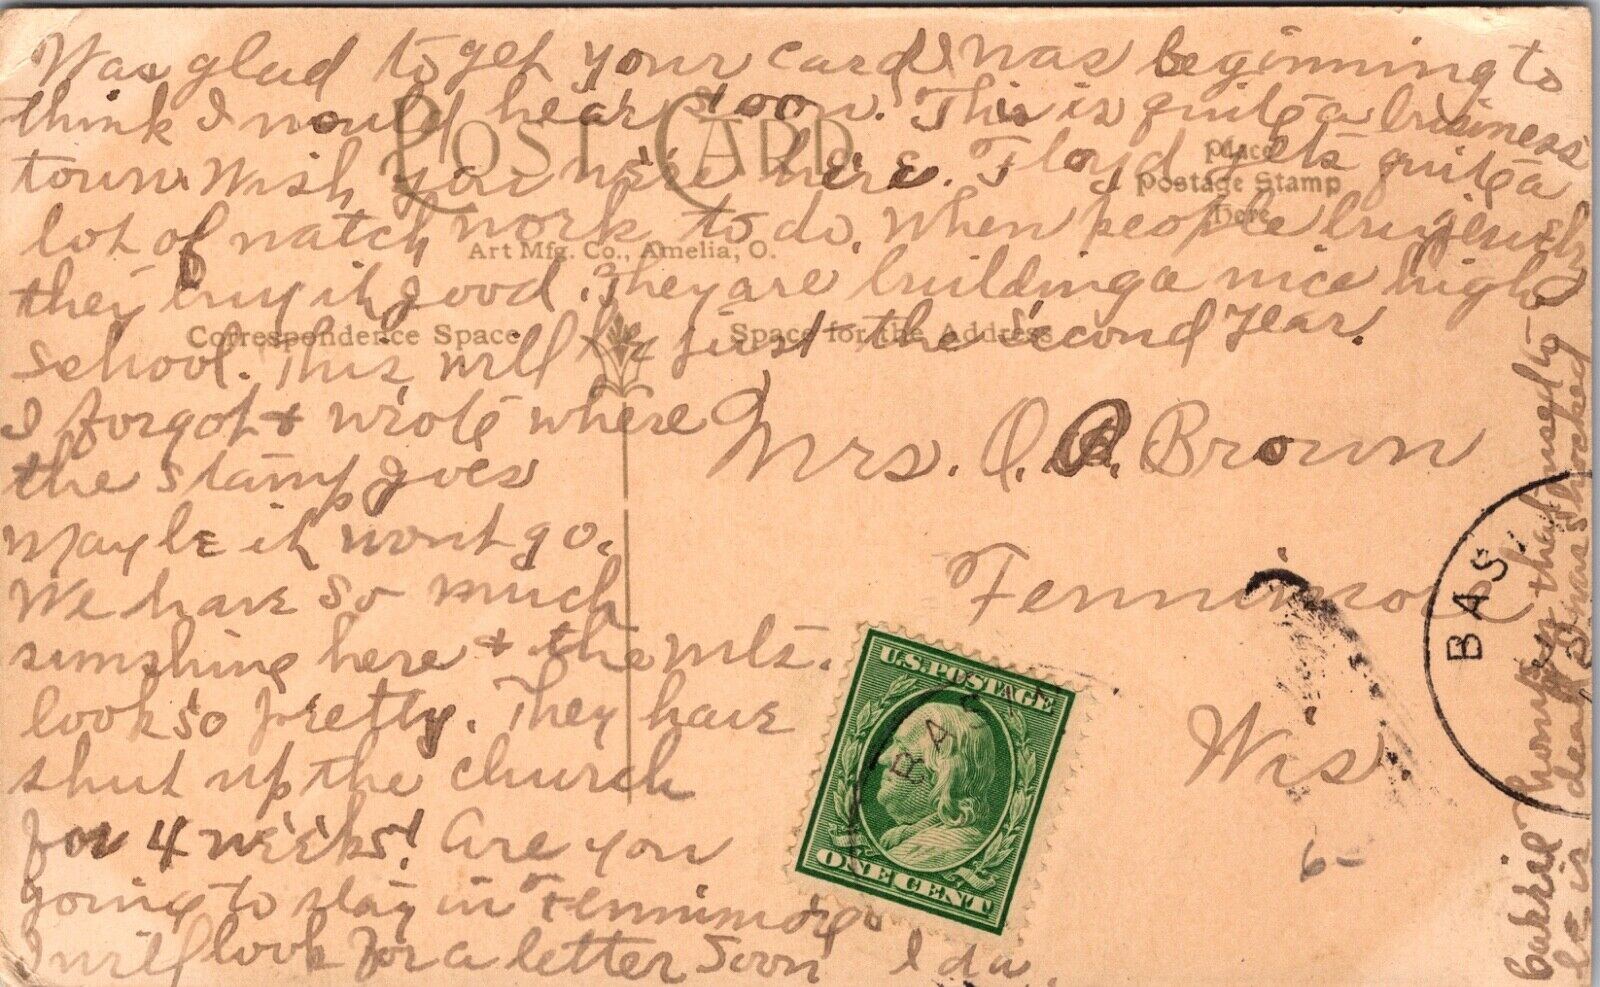 Was glad to get your card, was beginning to
think I would hear soon. This is quite a business
town. Wish you were here. Floyd gets quite a
lot of watch work to do. When people buy jewelry
they buy it good. They are building a nice high
school. This will be just the second year.
I forgot & wrote where
the stamp goes
Maybe it wont go.
We have so much
sunshine here & the mts.
look so pretty. They have
shut up the church
for 4 weeks! Are you
going to stay in Fennimore
I will look for a letter soon Ida.
POST CARD
Place
Postage Stamp
Here
Art Mfg. Co., Amelia, O.
Correspondence Space
Space for the Address
Mrs. O. A. Brown
Fennimore
Wis.
U.S. POSTAGE
ONE CENT
BAS
BAS
6-
Carrie Thompson that used to
be is dead I was shocked